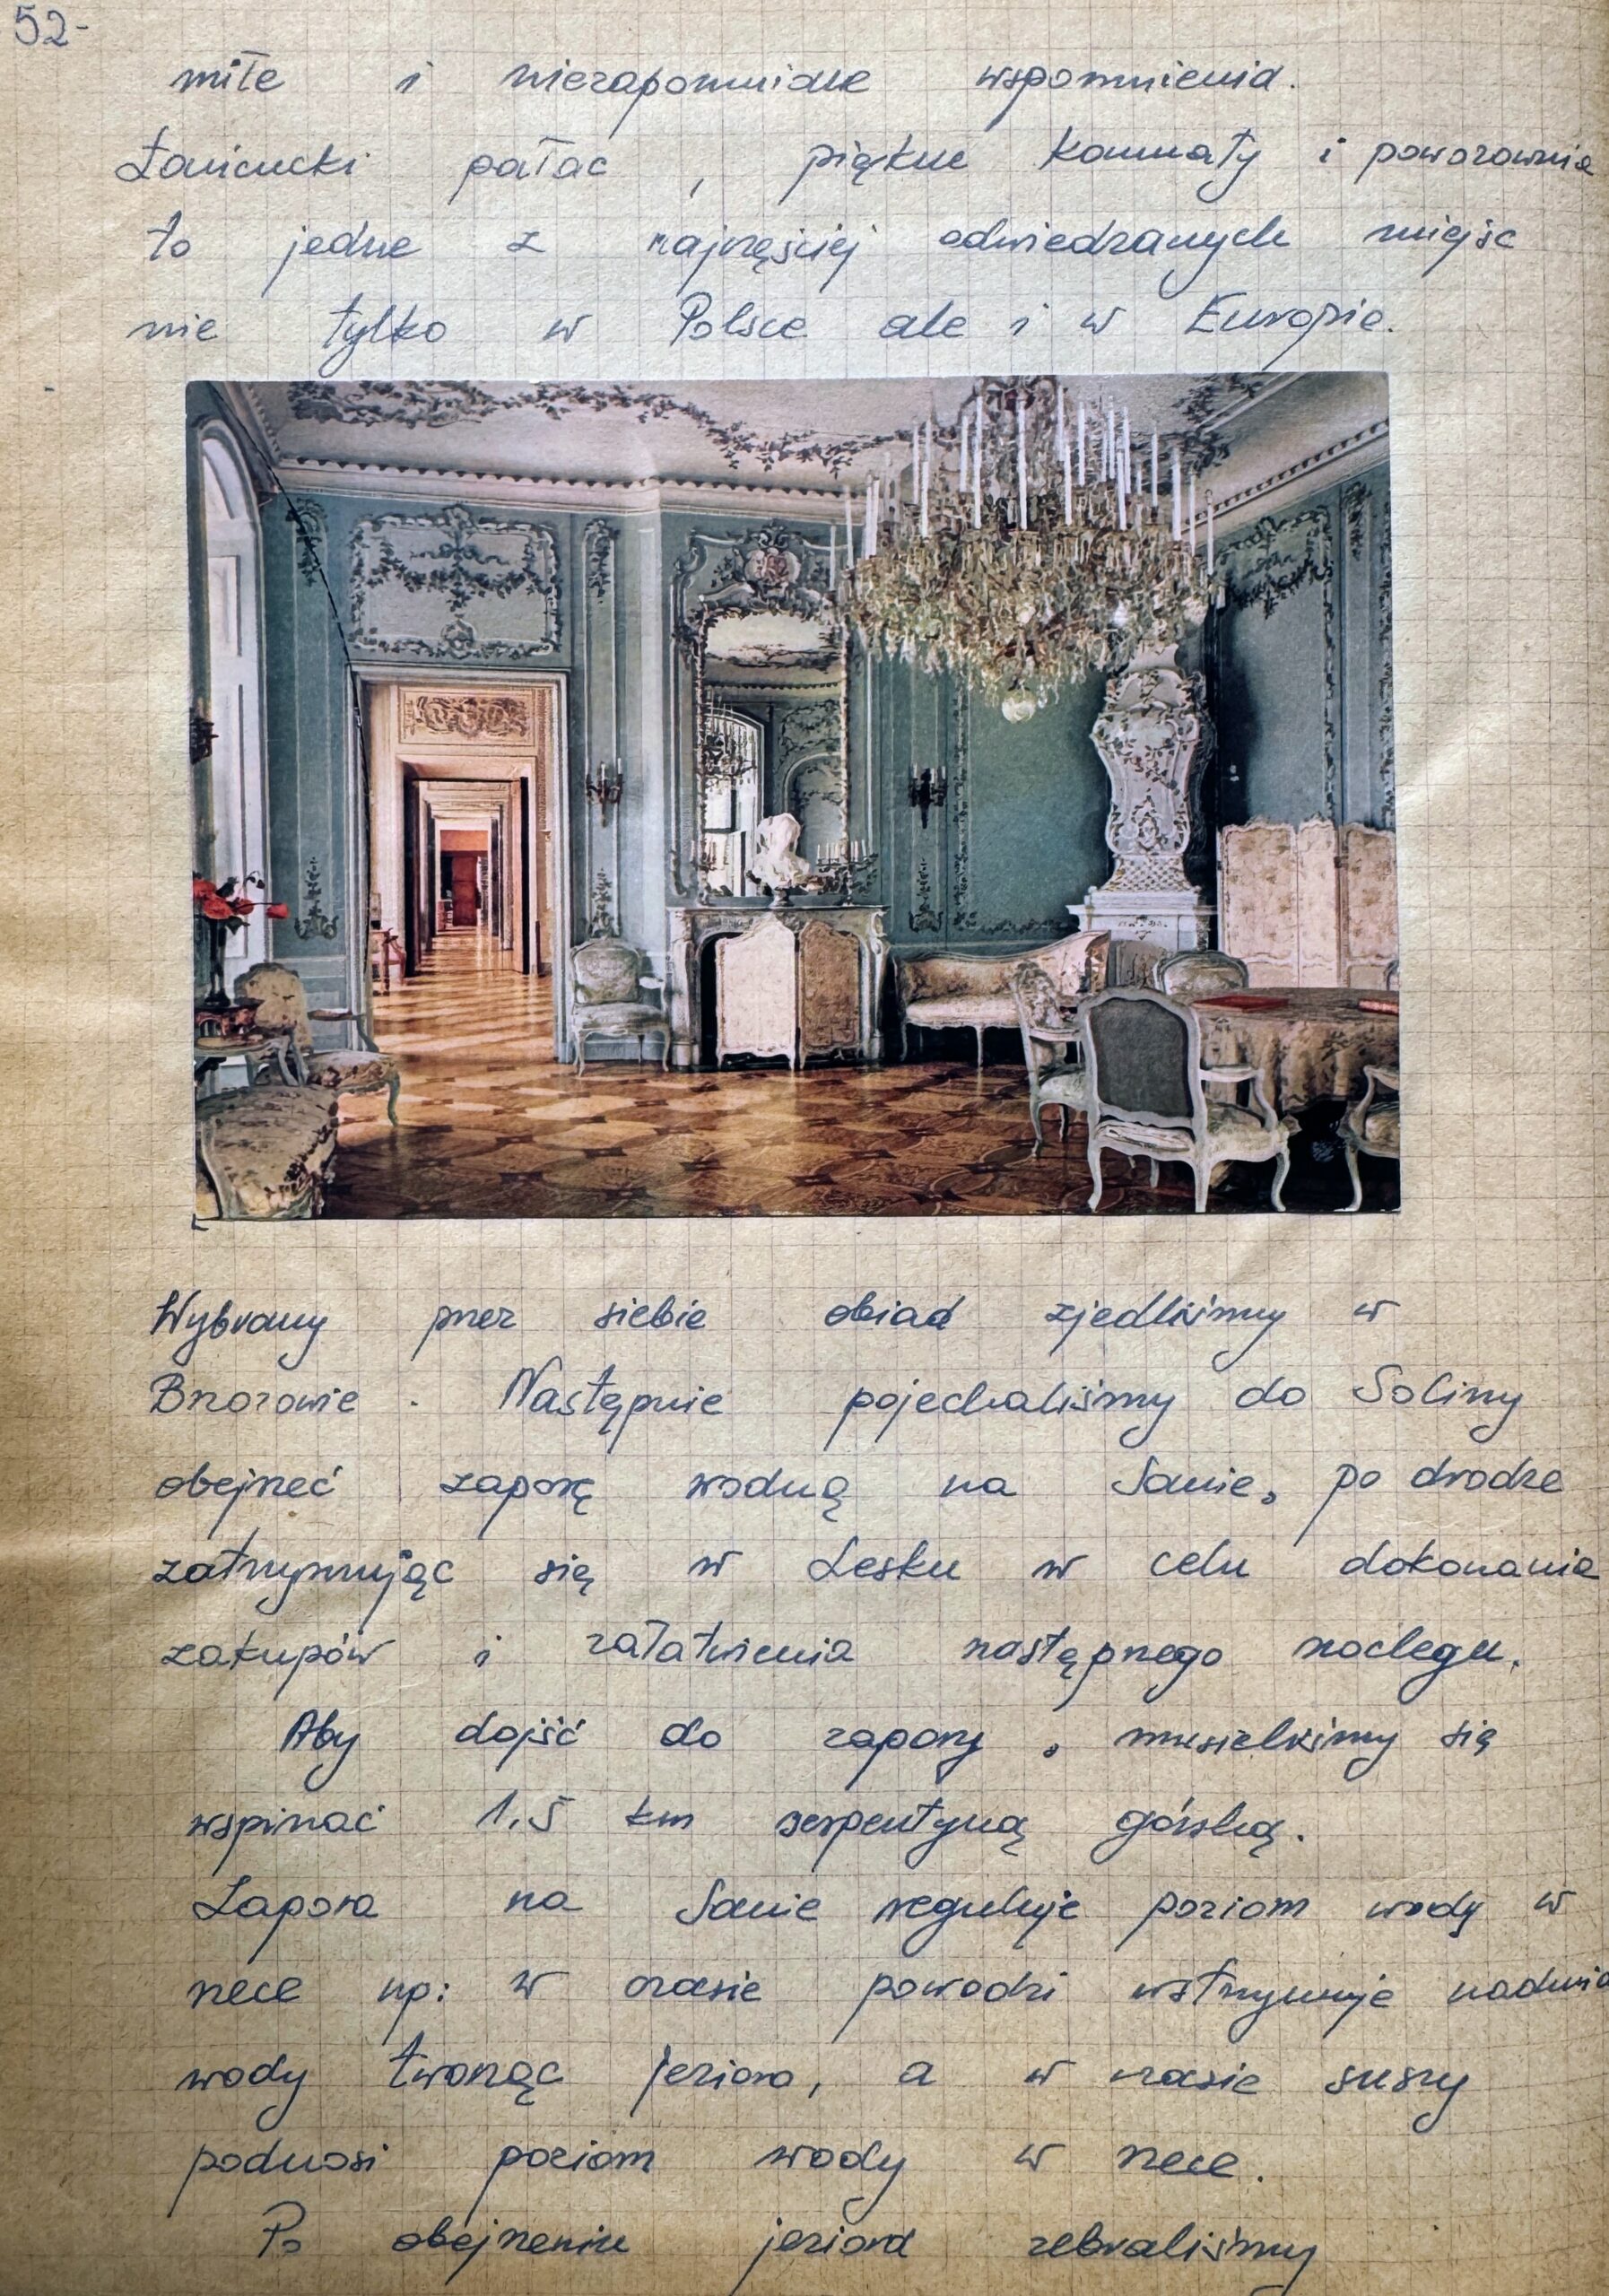 52-
miłe i niezapomniane wspomnienia.
Łańcucki pałac , piękne komnaty i powozownia
to jedne z najczęściej odwiedzanych miejsc
nie tylko w Polsce ale i w Europie.
Wybrany przez siebie obiad zjedliśmy w
Brzozowie . Następnie pojechaliśmy do Soliny
obejrzeć zaporę wodną na Sanie, po drodze
zatrzymując się w Lesku w celu dokonania
zakupów i załatwienia następnego noclegu.
Aby dojść do zapory , musieliśmy się
wspinać 1,5 km serpentyną górską.
Zapora na Sanie reguluje poziom wody w
rzece np: w czasie powodzi wstrzymuje nadmia
wody tworząc jezioro, a w czasie suszy
podnosi poziom wody w rzece.
Po obejrzeniu jeziora zebraliśmy